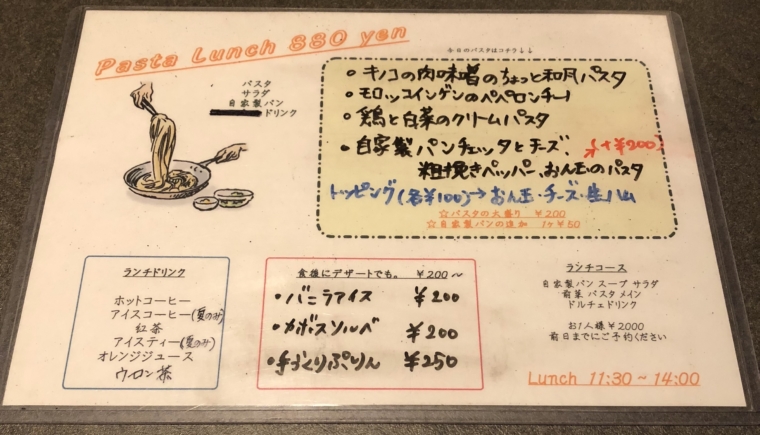 Pasta Lunch 880 yen
パスタ
サラダ
自家製パン
ドリンク
今日のパスタはコチラ↓↓
・キノコの肉味噌のちょっと和風パスタ
・モロッコインゲンのペペロンチーノ
・鶏と白菜のクリームパスタ
・自家製パンチェッタとチーズ、(+¥200)
粗挽きペッパー、おん玉のパスタ
トッピング(各¥100)→おん玉・チーズ・生ハム
☆パスタの大盛り ¥200
☆自家製パンの追加 1ヶ¥50
ランチドリンク
ホットコーヒー
アイスコーヒー(夏のみ)
紅茶
アイスティー(夏のみ)
オレンジジュース
ウーロン茶
食後にデザートでも。 ¥200~
・バニラアイス ¥200
・カボスソルベ ¥200
・手づくりぷりん ¥250
ランチコース
自家製パン スープ サラダ
前菜 パスタ メイン
ドルチェドリンク
お1人様 ¥2000
前日までにご予約ください
Lunch 11:30~14:00